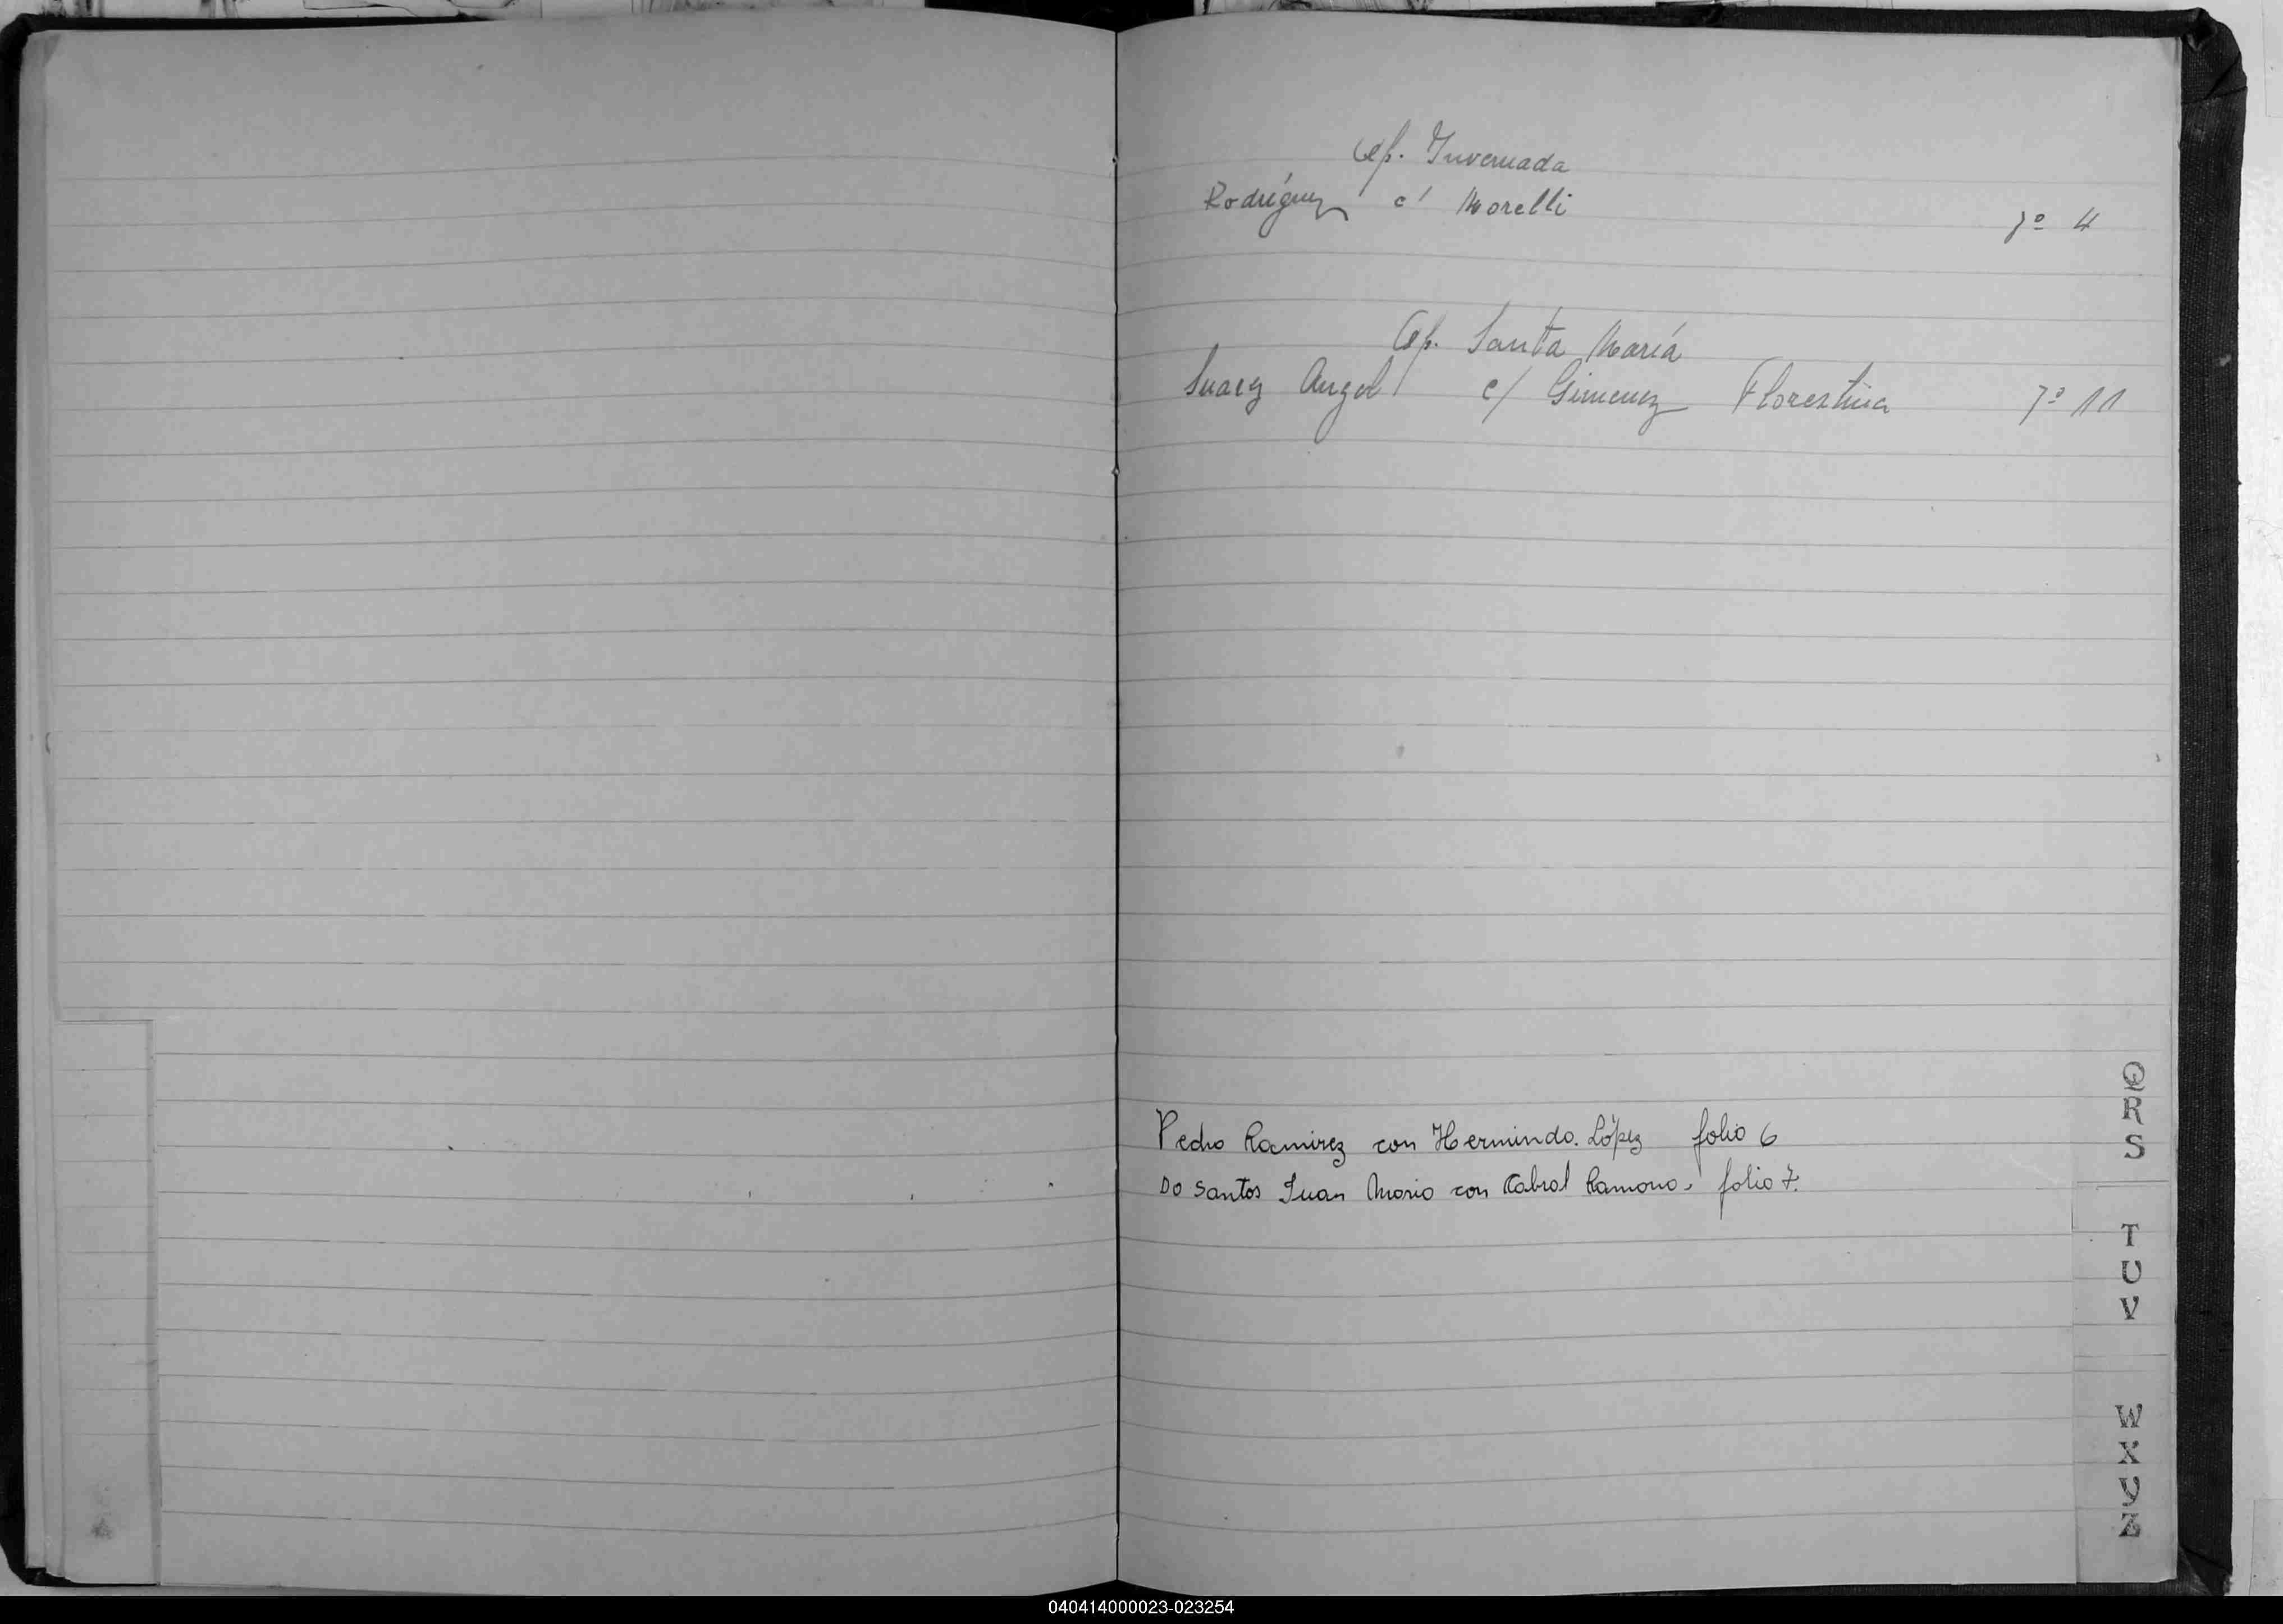 Cap. Invernada
Rodríguez c/ Morelli
Fº 4
Cap. Santa María
Suarez Angel c/ Gimenez Florestina Fº 11
Pedro Ramirez con Herminda. López folio 6
Do Santos Juan Mario con Cabral Ramona, folio 7.
Q
R
S
T
U
V
W
X
Y
Z
040414000023-023254